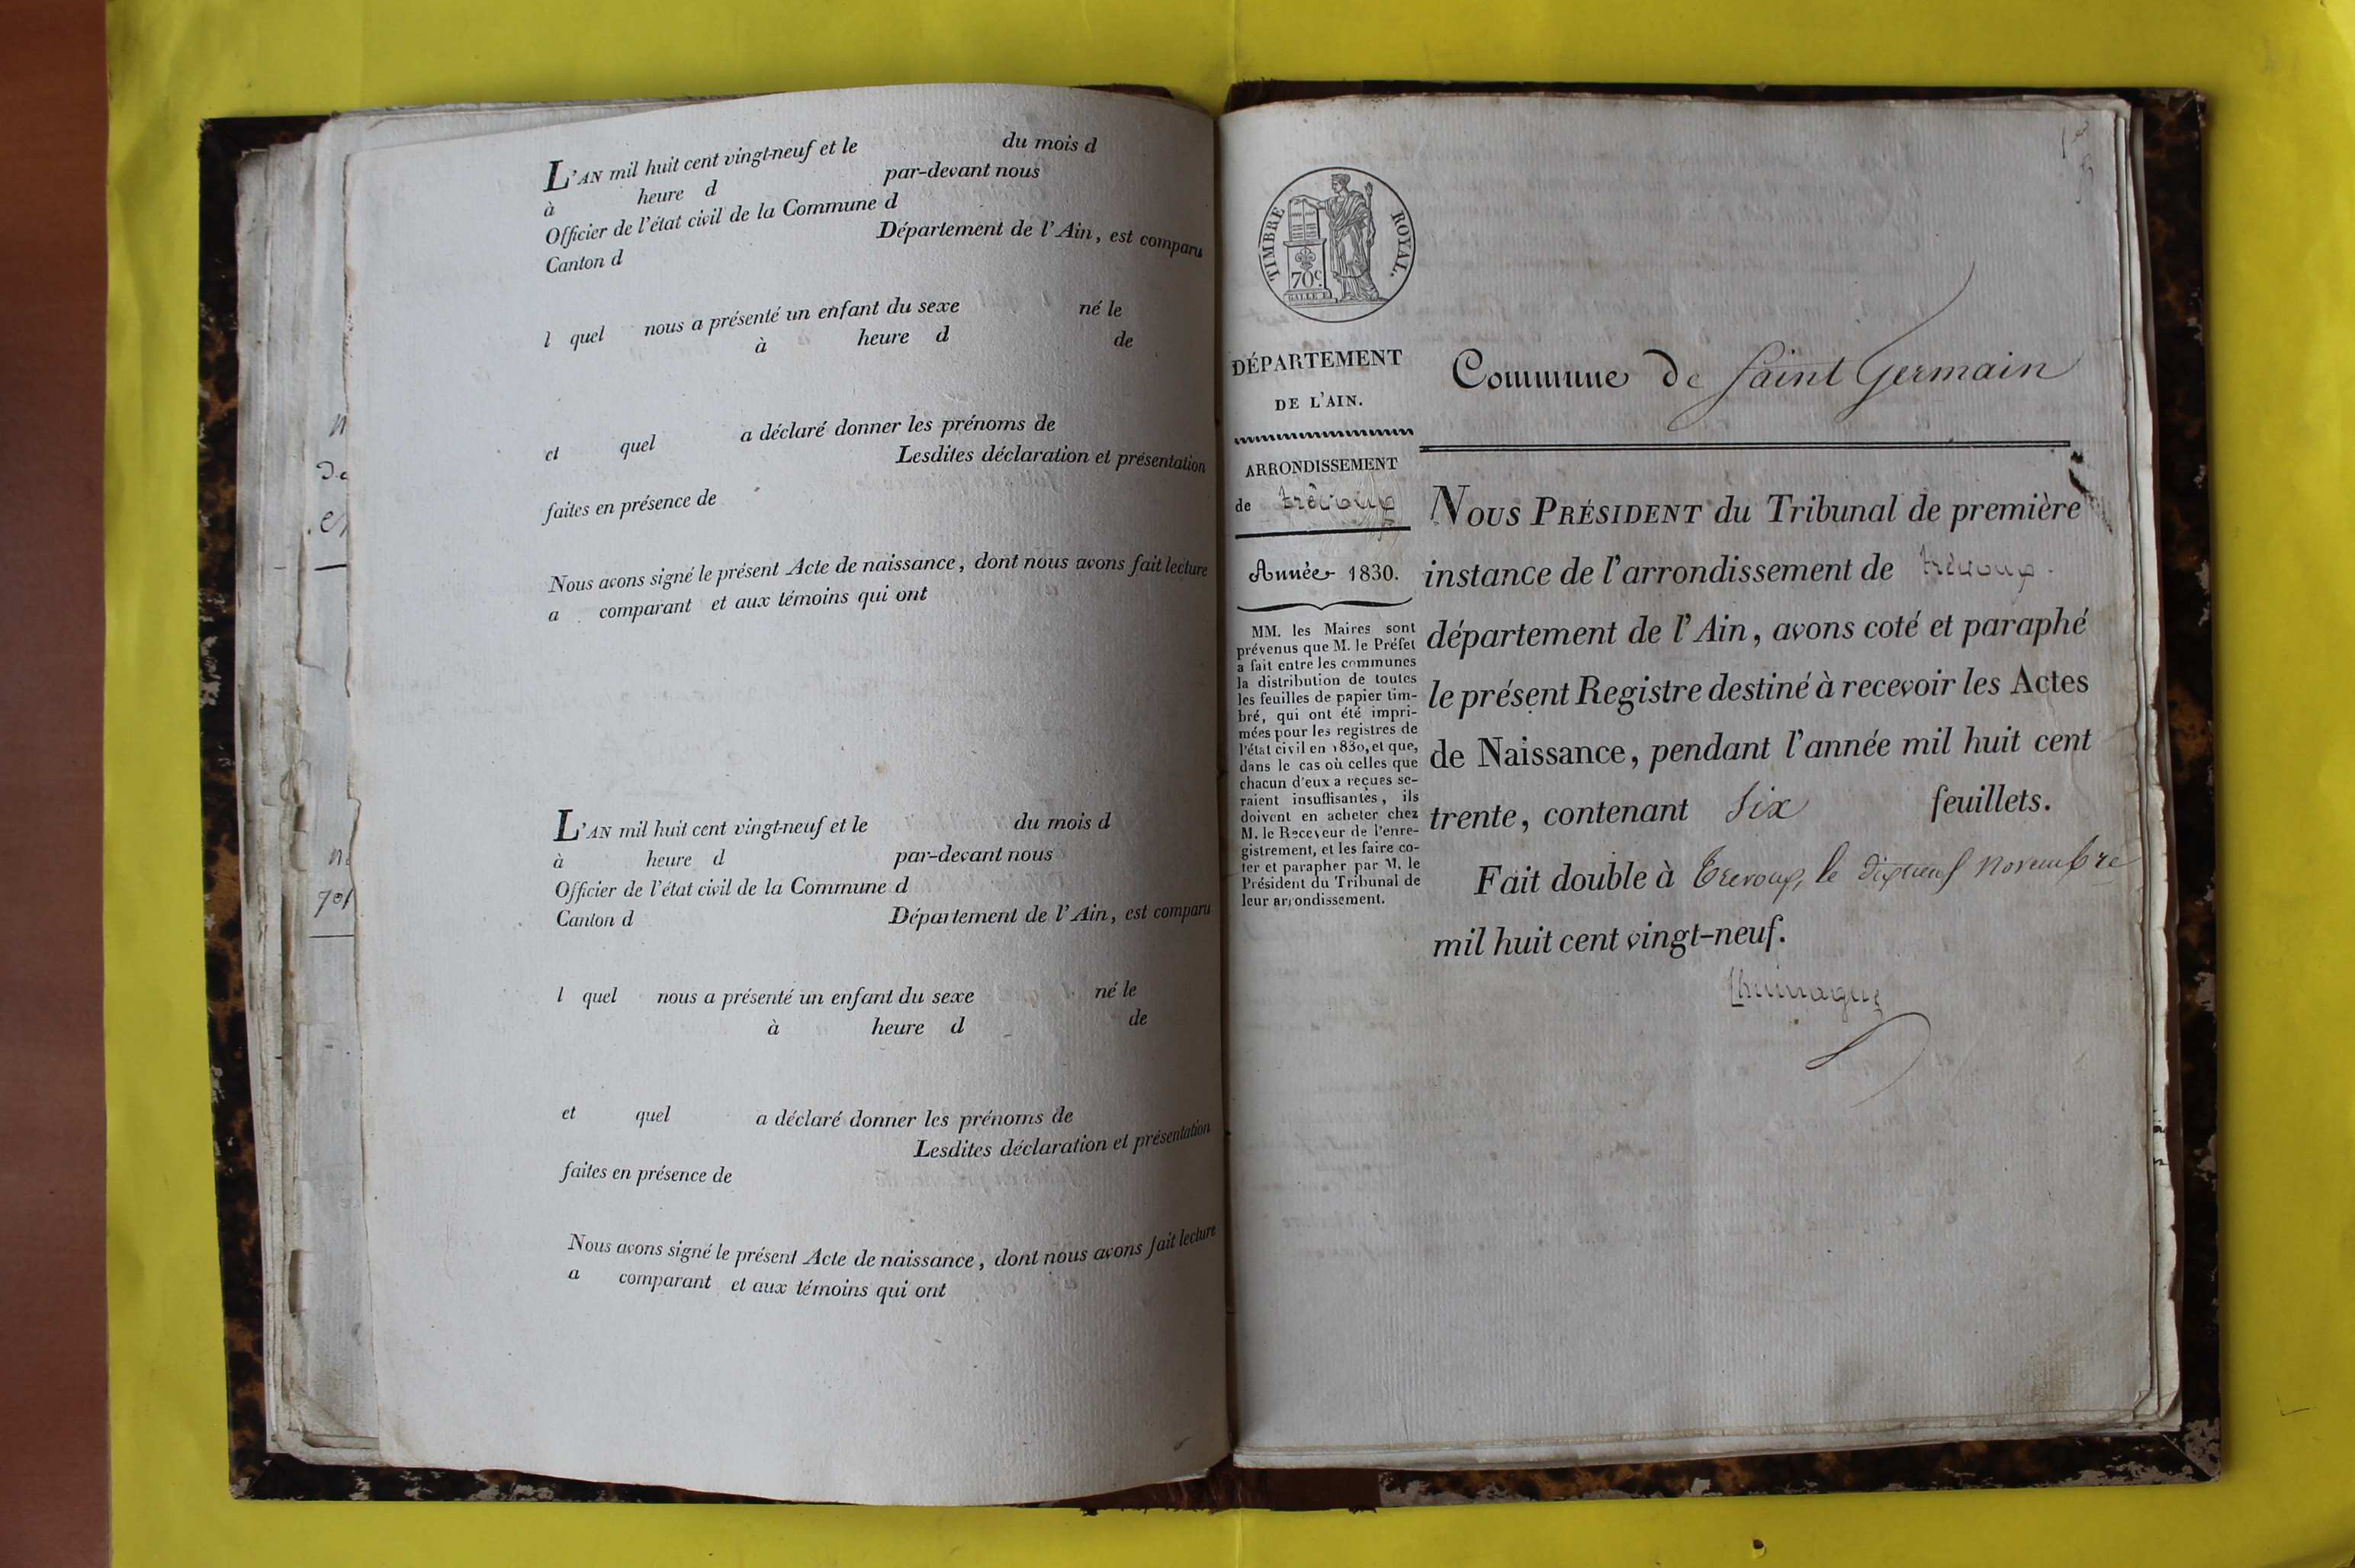 L'AN mil huit cent vingt-neuf et le du mois d
à heure d par-devant nous
Officier de l'état civil de la Commune d
Canton d Département de l'Ain, est comparu
l quel nous a présenté un enfant du sexe né le
à heure d de
et quel a déclaré donner les prénoms de
Lesdites déclaration et présentation
faites en présence de
Nous avons signé le présent Acte de naissance, dont nous avons fait lecture
a comparant et aux témoins qui ont
L'AN mil huit cent vingt-neuf et le du mois d
à heure d par-devant nous
Officier de l'état civil de la Commune d
Canton d Département de l'Ain, est comparu
l quel nous a présenté un enfant du sexe né le
à heure d de
et quel a déclaré donner les prénoms de
Lesdites déclaration et présentation
faites en présence de
Nous avons signé le présent Acte de naissance, dont nous avons fait lecture
a comparant et aux témoins qui ont
TIMBRE ROYAL.
70c.
DÉPARTEMENT
DE L'AIN.
ARRONDISSEMENT
de trévoux
Année 1830.
MM. les Maires sont
prévenus que M. le Préfet
a fait entre les communes
la distribution de toutes
les feuilles de papier tim-
bré, qui ont été impri-
mées pour les registres de
l'état civil en 1830, et que,
dans le cas où celles que
chacun d'eux a reçues se-
raient insuffisantes, ils
doivent en acheter chez
M. le Receveur de l'enre-
gistrement, et les faire co-
ter et parapher par M. le
Président du Tribunal de
leur arrondissement.
Commune de Saint Germain
NOUS PRÉSIDENT du Tribunal de première
instance de l'arrondissement de trévoux.
département de l'Ain, avons coté et paraphé
le présent Registre destiné à recevoir les Actes
de Naissance, pendant l'année mil huit cent
trente, contenant Six feuillets.
Fait double à Trevoux, le dixneuf novembre
mil huit cent vingt-neuf.